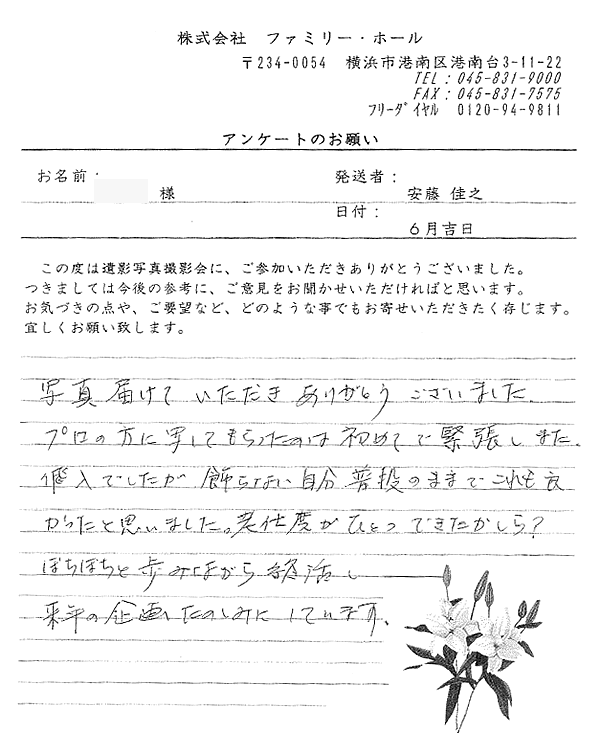 株式会社　ファミリー・ホール
〒234-0054　横浜市港南区港南台3-11-22
TEL：045-831-9000
FAX：045-831-7575
フリーダイヤル　0120-94-9811
アンケートのお願い
お名前：
様
発送者：
安藤 佳之
日付：
６月吉日
この度は遺影写真撮影会に、ご参加いただきありがとうございました。
つきましては今後の参考に、ご意見をお聞かせいただければと思います。
お気づきの点や、ご要望など、どのような事でもお寄せいただきたく存じます。
宜しくお願い致します。
写真届けて いただき ありがとう ございました.
プロの方に写してもらったのは 初めてで 緊張しました.
でしたが 飾らない 自分 普段のままで これも良
かったと思いました。老仕度が ひとつ できたかしら?
ぼちぼちと 歩みながら 終活し
来年の企画へ たのしみに しています.